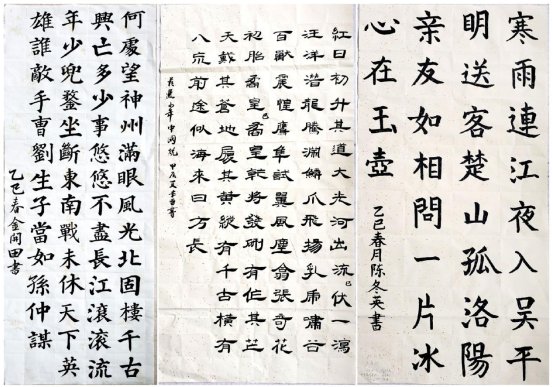 何處望神州滿眼風光北固樓千古
興亡多少事悠悠不盡長江滾滾流
年少兜鍪坐斷東南戰未休天下英
雄誰敵手曹劉生子當如孫仲謀
乙巳春金開田書
紅日初升其道大光河出流伏一瀉
汪洋潛龍騰淵鱗爪飛揚乳虎嘯谷
百獸震惶鷹隼試翼風塵翕張奇花
初胎矞皇矞皇乾將發硎有作其芒
天戴其蒼地履其黃縱有千古橫有
八荒前途似海來日方長
年中國說
寒雨連江夜入吳平
明送客楚山孤洛陽
亲友如相問一片冰
心在玉壺
乙巳春月陈冬英書